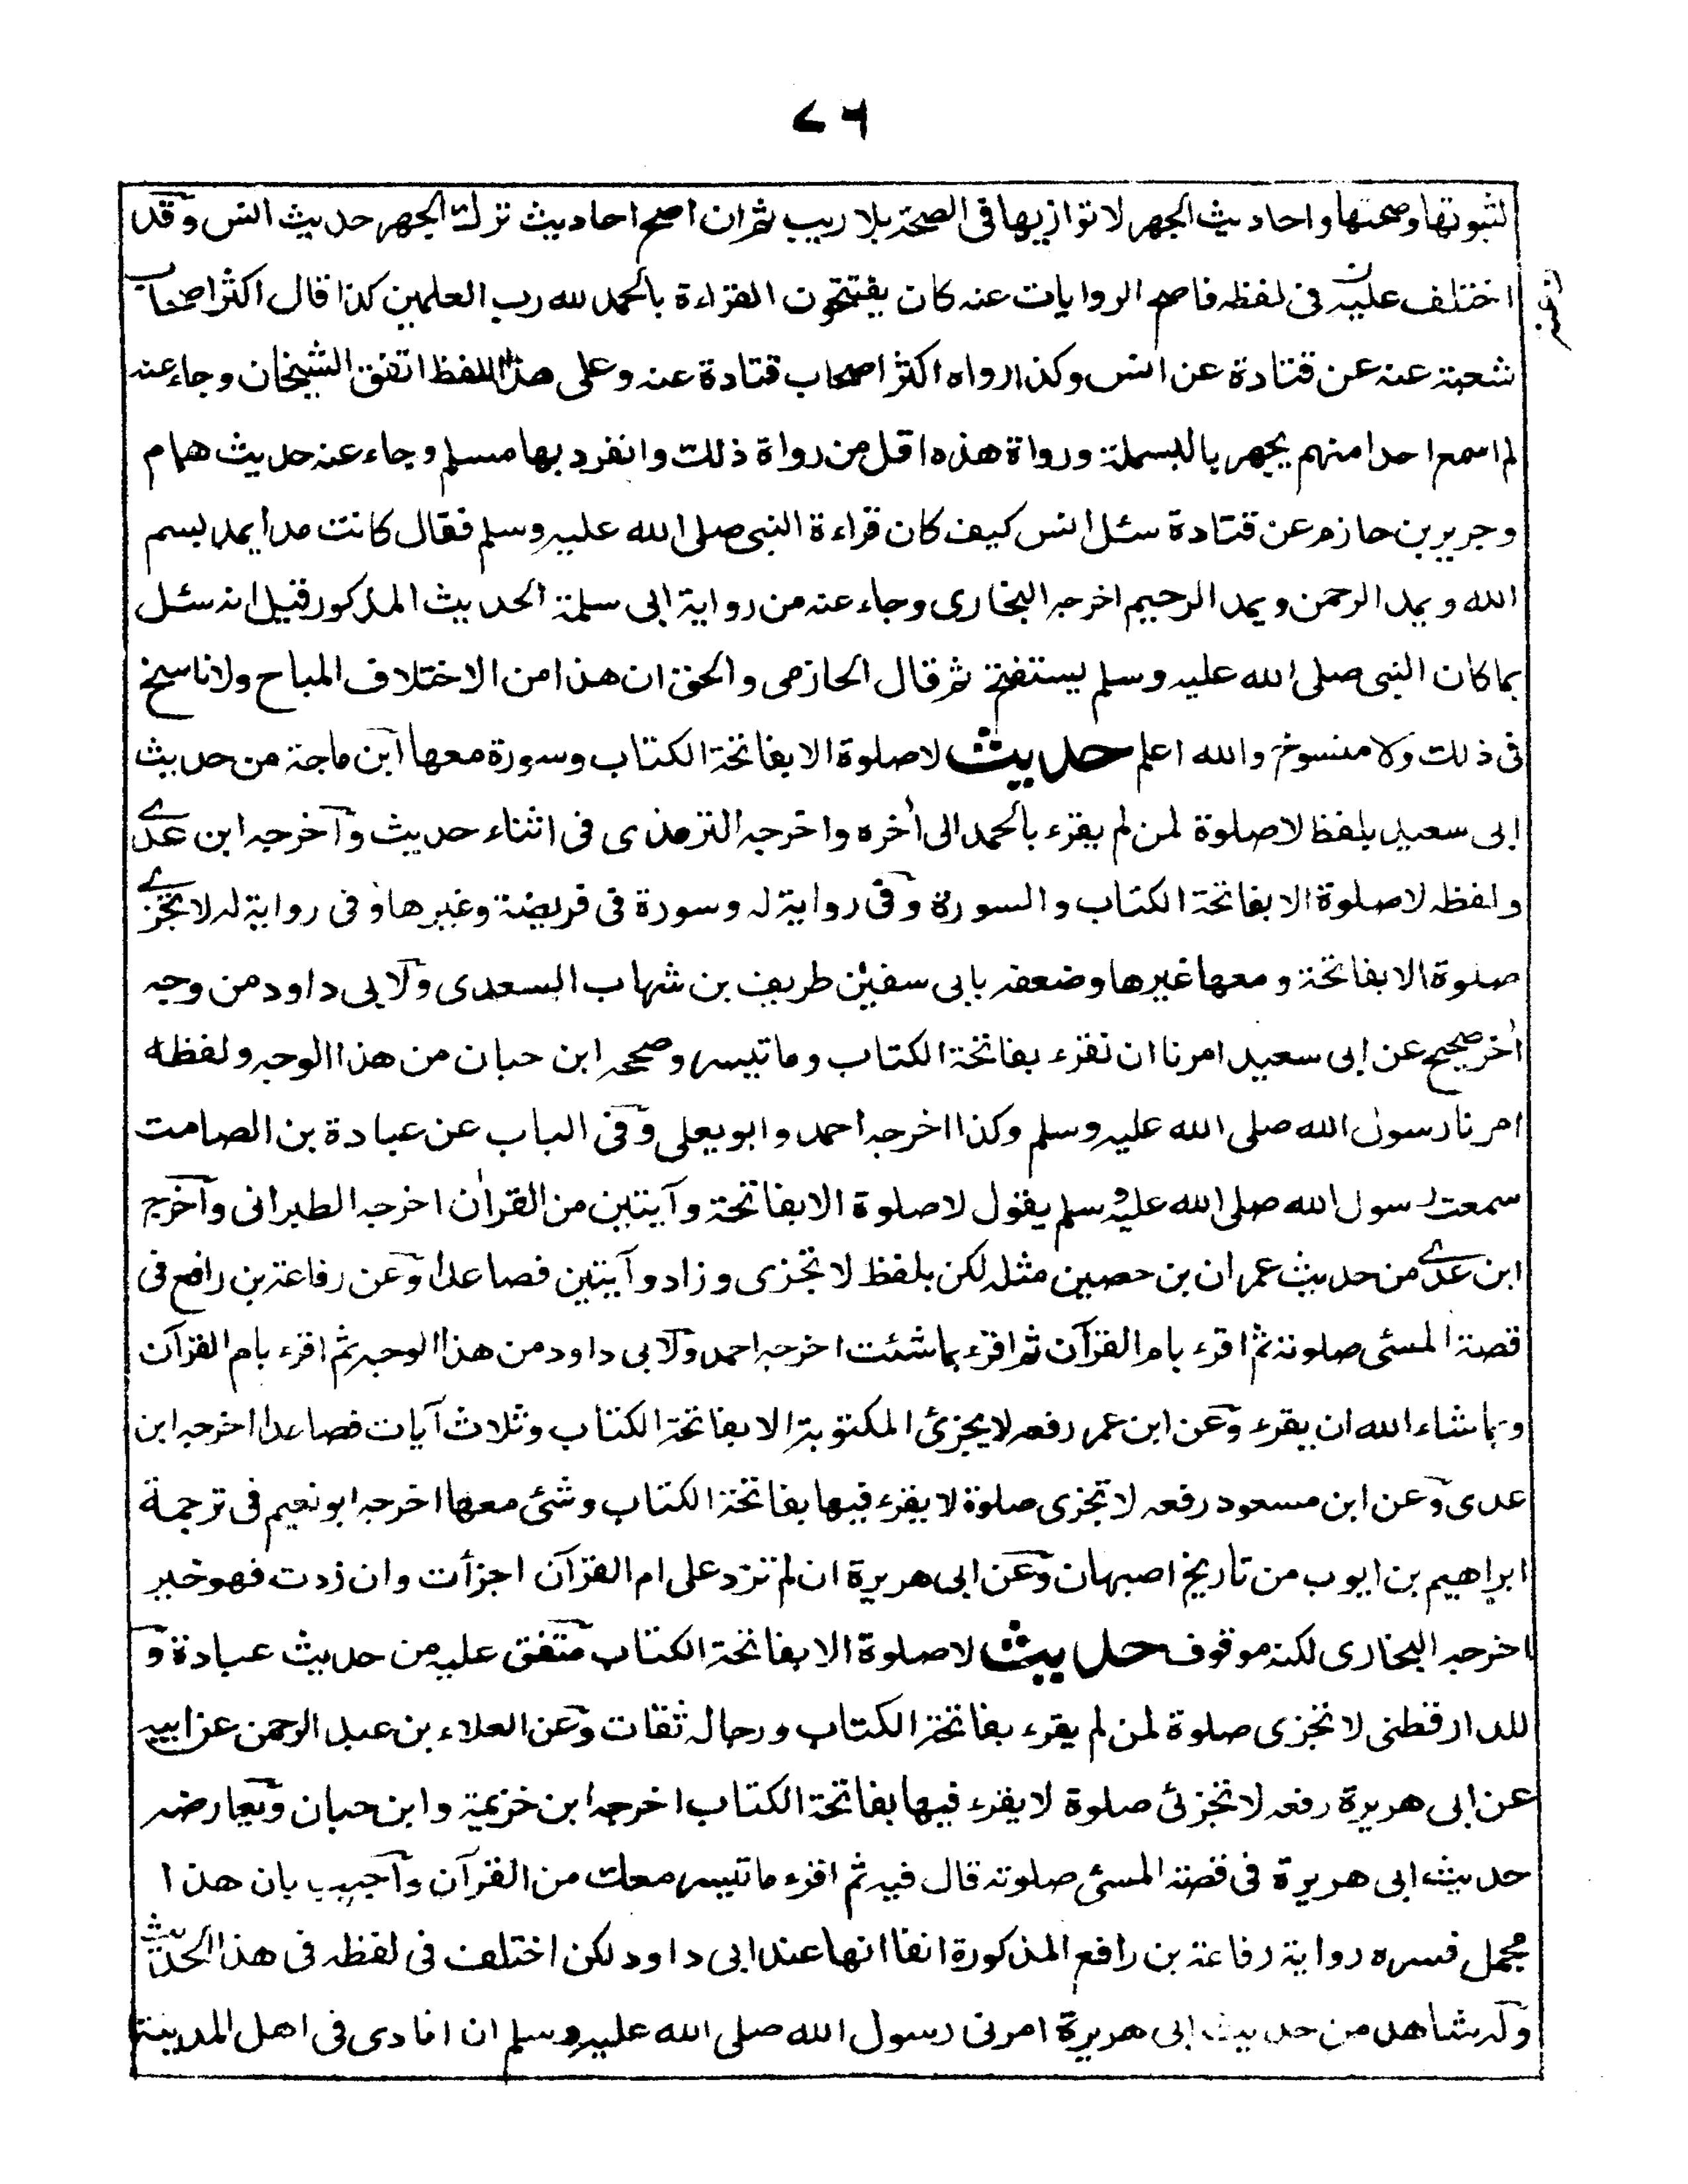 ٧٦
لثبوتها وصحتها واحاديث الجهر لا توازيها فى الصحة بلا ريب ثم ان اصح احاديث ترك الجهر حديث انس وقد
اختلف عليه فى لفظه فاصح الروايات عنه كان يفتتحون القراءة بالحمد لله رب العلمين كذا قال اكثر اصحاب
شعبة عنه عن قتادة عن انس وكذا رواه اكثر اصحاب قتادة عنه وعلى هذا اللفظ اتفق الشيخان وجاء عنه
لم اسمع احدا منهم يجهر بالبسملة ورواة هذه اقل من رواة ذلك وانفرد بها مسلم وجاء عنه حديث همام
وجرير بن حازم عن قتادة سئل انس كيف كان قراءة النبى صلى الله عليه وسلم فقال كانت مدا يمد بسم
الله ويمد الرحمن ويمد الرحيم اخرجه البخارى وجاء عنه من رواية ابى سلمة الحديث المذكور قبل انه سئل
بما كان النبى صلى الله عليه وسلم يستفتح ثم قال الحازمى والحق ان هذا من الاختلاف المباح ولا ناسخ
فى ذلك ولا منسوخ والله اعلم حديث لا صلوة الا بفاتحة الكتاب وسورة معها ابن ماجة من حديث
ابى سعيد بلفظ لا صلوة لمن لم يقرء بالحمد الى أخره واخرجه الترمذى فى اثناء حديث وآخرجه ابن عدے
ولفظه لا صلوة الا بفاتحة الكتاب والسورة وفى رواية له وسورة فى فريضة وغيرها وفى رواية له لا تجزے
صلوة الا بفاتحة ومعها غيرها وضعفه بابى سفيٰن طريف بن شهاب السعدى ولابى داود من وجه
أخر صحيح عن ابى سعيد امرنا ان نقرء بفاتحة الكتاب وما تيسر وصححه ابن حبان من هذا الوجه ولفظه
امرنا رسول الله صلى الله عليه وسلم وكذا اخرجه احمد وابويعلى وفى الباب عن عبادة بن الصامت
سمعت رسول الله صلى الله عليه وسلم يقول لا صلوة الا بفاتحة وآيتين من القراٰن اخرجه الطبرانى وآخرج
ابن عدے من حديث عمران بن حصين مثله لكن بلفظ لا تجزى وزاد وآيتين فصاعدا وعن رفاعة بن رافع فى
قصة المسئى صلوته ثم اقرء بام القرآن ثم اقرء بما شئت اخرجه احمد ولابى داود من هذا الوجه ثم اقرء بام القرآن
وبما شاء الله ان يقرء وعن ابن عمر رفعه لا يجزئ المكتوبة الا بفاتحة الكتاب وثلاث آيات فصاعدا اخرجه ابن
عدى وعن ابن مسعود رفعه لا تجزى صلوة لا يقرء فيها بفاتحة الكتاب وشئ معها اخرجه ابو نعيم فى ترجمة
ابراهيم بن ايوب من تاريخ اصبهان وعن ابى هريرة ان لم تزد على ام القرآن اجزأت وان زدت فهو خير
اخرجه البخارى لكنه موقوف حديث لا صلوة الا بفاتحة الكتاب متفق عليه من حديث عبادة و
للدارقطنى لا تجزى صلوة لمن لم يقرء بفاتحة الكتاب ورجاله ثقات وعن العلاء بن عبد الرحمن عن ابيه
عن ابى هريرة رفعه لا تجزئ صلوة لا يقرء فيها بفاتحة الكتاب اخرجه ابن خزيمة وابن حبان ويعارضه
حديث ابى هريرة فى قصة المسئ صلوته قال فيه ثم اقرء ما تيسر معك من القرآن وآجيب بان هذا
مجمل فسره رواية رفاعة بن رافع المذكورة انفا انها عند ابى داود لكن اختلف فى لفظه فى هذا الحديث
وله شاهد من حديث ابى هريرة امرنى رسول الله صلى الله عليه وسلم ان انادى فى اهل المدينة